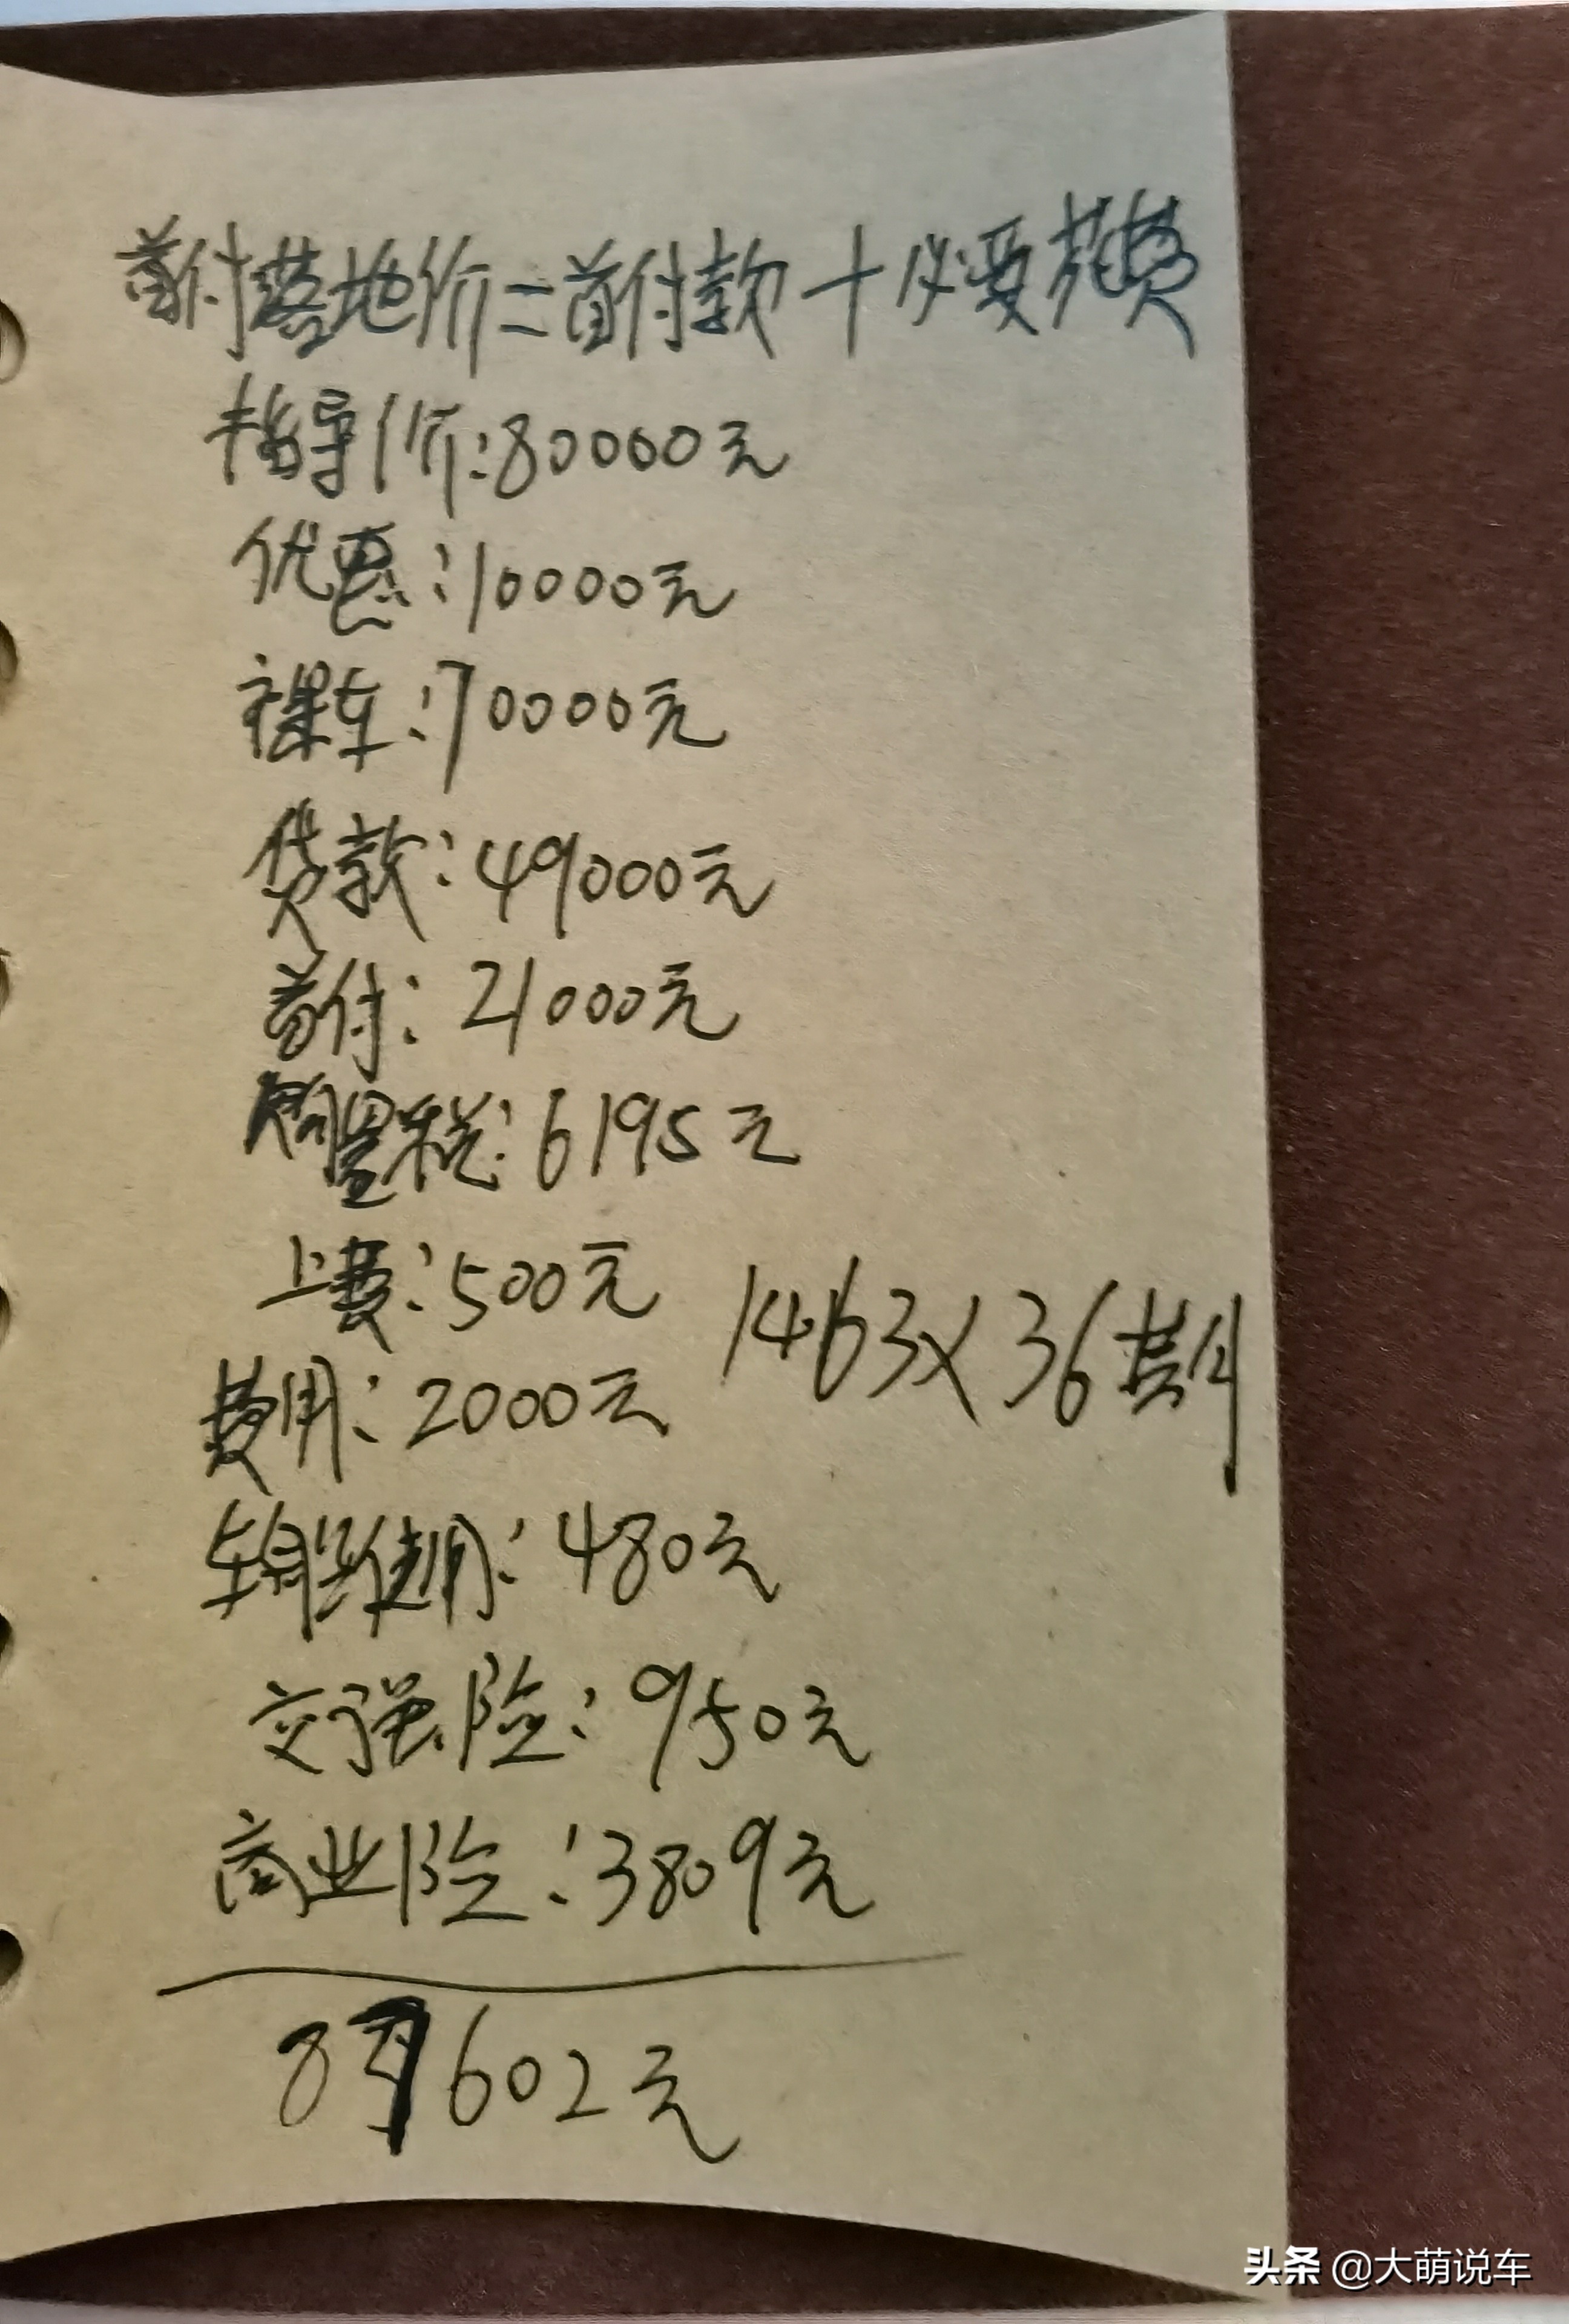 首付落地价=首付款+必要花费
指导价:80000元
优惠:10000元
裸车:70000元
贷款:49000元
首付:21000元
购置税:6195元
上费:500元
1463×36期
费用:2000元
车船使用:480元
交强险:950元
商业险:3809元
602元
头条 @大萌说车